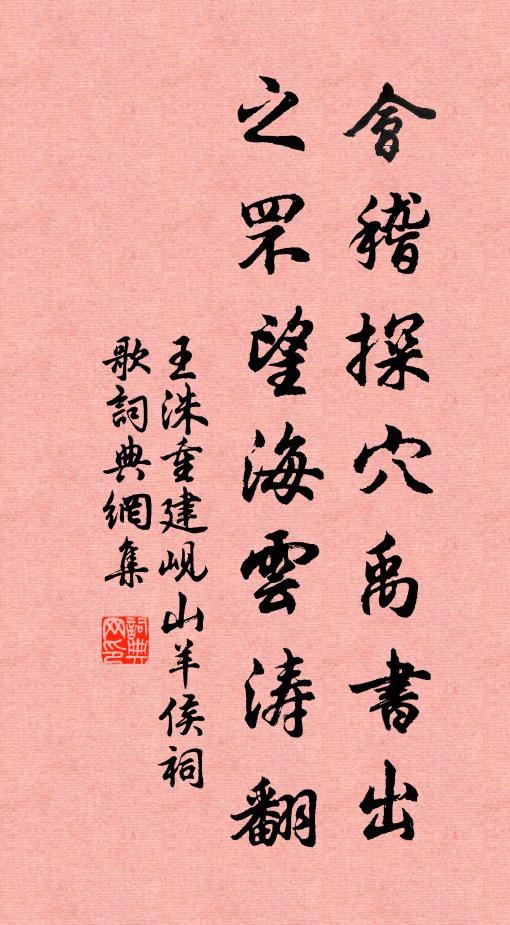 會稽探穴禹書出
之罘望海雲濤翻
王洙重建峴山羊侯祠
歌詞典網集
詞典網印